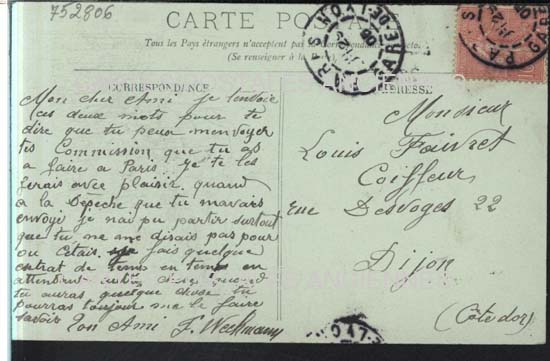 752806
CARTE POSTALE
Tous les Pays étrangers n'acceptent pas la Correspondance au Recto
(Se renseigner à la Poste)
CORRESPONDANCE
ADRESSE
Mon cher Ami je tenvoie
les deux mots pour te
dire que tu peux menvoyer
tes Commission que tu as
a faire a Paris je te les
ferais avec plaisir, quand
a la Dépeche que tu mavais
envoyé je nai pu partir surtout
que tu ne me disais pas pour
ou cetais je fais quelque
entrat de temps en temps en
attendant autre chose quand
tu auras quelque chose tu
pourras toujour me le faire
savoir Ton Ami
Monsieur
Louis Faivret
Coiffeur
rue Desvoges 22
Dijon
(Côte d'or)
PARIS
GARE-DE-LYON